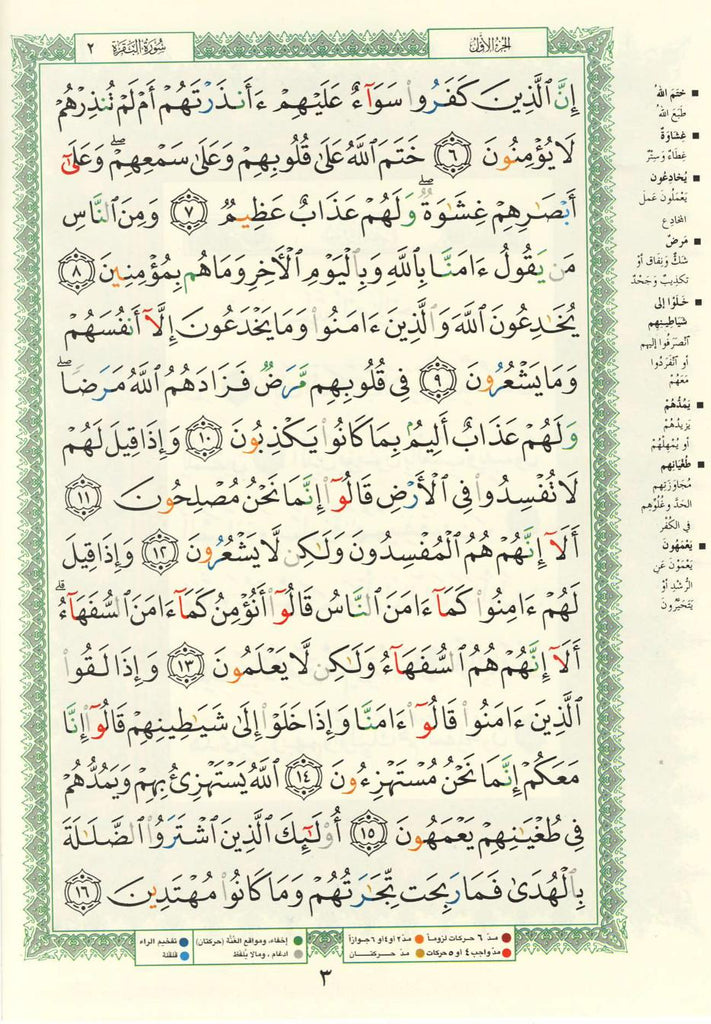 سُورَةُ البَقَرَةِ ٢
الجُزءُ الأَوَّلُ
إِنَّ ٱلَّذِينَ كَفَرُوا۟ سَوَآءٌ عَلَيْهِمْ ءَأَنذَرْتَهُمْ أَمْ لَمْ تُنذِرْهُمْ
لَا يُؤْمِنُونَ ٦ خَتَمَ ٱللَّهُ عَلَىٰ قُلُوبِهِمْ وَعَلَىٰ سَمْعِهِمْ ۖ وَعَلَىٰٓ
أَبْصَٰرِهِمْ غِشَٰوَةٌ ۖ وَلَهُمْ عَذَابٌ عَظِيمٌ ٧ وَمِنَ ٱلنَّاسِ
مَن يَقُولُ ءَامَنَّا بِٱللَّهِ وَبِٱلْيَوْمِ ٱلْأَخِرِ وَمَا هُم بِمُؤْمِنِينَ ٨
يُخَٰدِعُونَ ٱللَّهَ وَٱلَّذِينَ ءَامَنُوا۟ وَمَا يَخْدَعُونَ إِلَّآ أَنفُسَهُمْ
وَمَا يَشْعُرُونَ ٩ فِى قُلُوبِهِم مَّرَضٌ فَزَادَهُمُ ٱللَّهُ مَرَضًا ۖ
وَلَهُمْ عَذَابٌ أَلِيمٌۢ بِمَا كَانُوا۟ يَكْذِبُونَ ١٠ وَإِذَا قِيلَ لَهُمْ
لَا تُفْسِدُوا۟ فِى ٱلْأَرْضِ قَالُوٓا۟ إِنَّمَا نَحْنُ مُصْلِحُونَ ١١
أَلَآ إِنَّهُمْ هُمُ ٱلْمُفْسِدُونَ وَلَٰكِن لَّا يَشْعُرُونَ ١٢ وَإِذَا قِيلَ
لَهُمْ ءَامِنُوا۟ كَمَآ ءَامَنَ ٱلنَّاسُ قَالُوٓا۟ أَنُؤْمِنُ كَمَآ ءَامَنَ ٱلسُّفَهَآءُ ۗ
أَلَآ إِنَّهُمْ هُمُ ٱلسُّفَهَآءُ وَلَٰكِن لَّا يَعْلَمُونَ ١٣ وَإِذَا لَقُوا۟
ٱلَّذِينَ ءَامَنُوا۟ قَالُوٓا۟ ءَامَنَّا وَإِذَا خَلَوْا۟ إِلَىٰ شَيَٰطِينِهِمْ قَالُوٓا۟ إِنَّا
مَعَكُمْ إِنَّمَا نَحْنُ مُسْتَهْزِءُونَ ١٤ ٱللَّهُ يَسْتَهْزِئُ بِهِمْ وَيَمُدُّهُمْ
فِى طُغْيَٰنِهِمْ يَعْمَهُونَ ١٥ أُو۟لَٰٓئِكَ ٱلَّذِينَ ٱشْتَرَوُا۟ ٱلضَّلَٰلَةَ
بِٱلْهُدَىٰ فَمَا رَبِحَت تِّجَٰرَتُهُمْ وَمَا كَانُوا۟ مُهْتَدِينَ ١٦
■ خَتَمَ اللهُ
طَبَعَ اللهُ
■ غِشَاوَةٌ
غِطَاءٌ وَسِتْرٌ
■ يُخَادِعُون
يَعْمَلُونَ عَمَلَ
المُخَادِعِ
■ مَرَضٌ
شَكٌّ وَنِفَاقٌ أَوْ
تَكْذِيبٌ وَجَحْدٌ
■ خَلَوْا إلى
شَيَاطِينِهِم
انْصَرَفُوا إليهم
أو انْفَرَدُوا
مَعَهُمْ
■ يَمُدُّهُمْ
يَزِيدُهُمْ
أو يُمْهِلُهُمْ
■ طُغْيَانِهِم
مُجَاوَزَتِهِم
الحَدَّ وغُلُوِّهِم
في الكُفْر
■ يَعْمَهُونَ
يَعْمَوْنَ عَنِ
الرُّشْدِ أَوْ
يَتَحَيَّرُونَ
مدّ ٦ حركات لزوماً ● مدّ ٢ أو ٤ أو ٦ جوازاً
مدّ واجب ٤ أو ٥ حركات ● مدّ حركتان
إخفاء، ومواقع الغُنَّة (حركتان) ● تفخيم الراء
ادغام، ومالا يُلفَظ ● قلقلة
٣